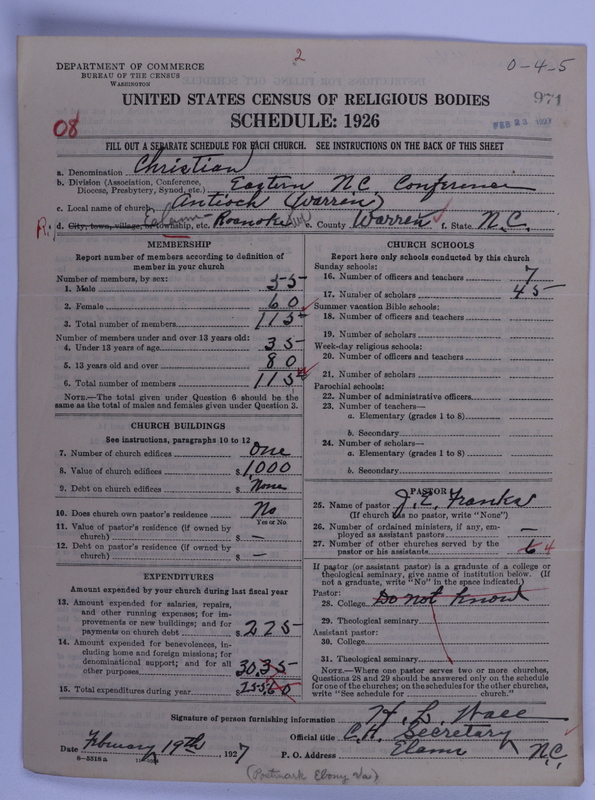 2
DEPARTMENT OF COMMERCE
BUREAU OF THE CENSUS
WASHINGTON
0-4-5
971
UNITED STATES CENSUS OF RELIGIOUS BODIES
SCHEDULE: 1926
08
FEB 23 1927
FILL OUT A SEPARATE SCHEDULE FOR EACH CHURCH. SEE INSTRUCTIONS ON THE BACK OF THIS SHEET
a. Denomination Christian
b. Division (Association, Conference, Diocese, Presbytery, Synod, etc.) Eastern N.C. Conference
c. Local name of church Antioch (Warren)
d. City, town, village, or township, etc. Elams Roanoke e. County Warren f. State N.C.
MEMBERSHIP
Report number of members according to definition of member in your church
Number of members, by sex:
1. Male 55
2. Female 60
3. Total number of members 115
Number of members under and over 13 years old:
4. Under 13 years of age 35
5. 13 years old and over 80
6. Total number of members 115
NOTE.—The total given under Question 6 should be the same as the total of males and females given under Question 3.
CHURCH BUILDINGS
See instructions, paragraphs 10 to 12
7. Number of church edifices One
8. Value of church edifices $ 1,000
9. Debt on church edifices $ None
10. Does church own pastor's residence No
Yes or No
11. Value of pastor's residence (if owned by church) $ —
12. Debt on pastor's residence (if owned by church) $ —
EXPENDITURES
Amount expended by your church during last fiscal year
13. Amount expended for salaries, repairs, and other running expenses; for improvements or new buildings; and for payments on church debt $ 225
14. Amount expended for benevolences, including home and foreign missions; for denominational support; and for all other purposes 30.35
15. Total expenditures during year $
CHURCH SCHOOLS
Report here only schools conducted by this church
Sunday schools:
16. Number of officers and teachers 7
17. Number of scholars 45
Summer vacation Bible schools:
18. Number of officers and teachers
19. Number of scholars
Week-day religious schools:
20. Number of officers and teachers
21. Number of scholars
Parochial schools:
22. Number of administrative officers
23. Number of teachers—
a. Elementary (grades 1 to 8)
b. Secondary
24. Number of scholars—
a. Elementary (grades 1 to 8)
b. Secondary
PASTOR
25. Name of pastor J. E. Franks
(If church has no pastor, write "None")
26. Number of ordained ministers, if any, employed as assistant pastors —
27. Number of other churches served by the pastor or his assistants 6 4
If pastor (or assistant pastor) is a graduate of a college or theological seminary, give name of institution below. (If not a graduate, write "No" in the space indicated.)
Pastor:
28. College Do not know
29. Theological seminary
Assistant pastor:
30. College
31. Theological seminary
NOTE.—Where one pastor serves two or more churches, Questions 28 and 29 should be answered only on the schedule for one of the churches; on the schedules for the other churches, write "See schedule for church."
Signature of person furnishing information H. L. Wall
Official title C.H. Secretary
Date February 19th 1927 P. O. Address Elams N.C.
8—5518a
(Postmark Ebony Va)